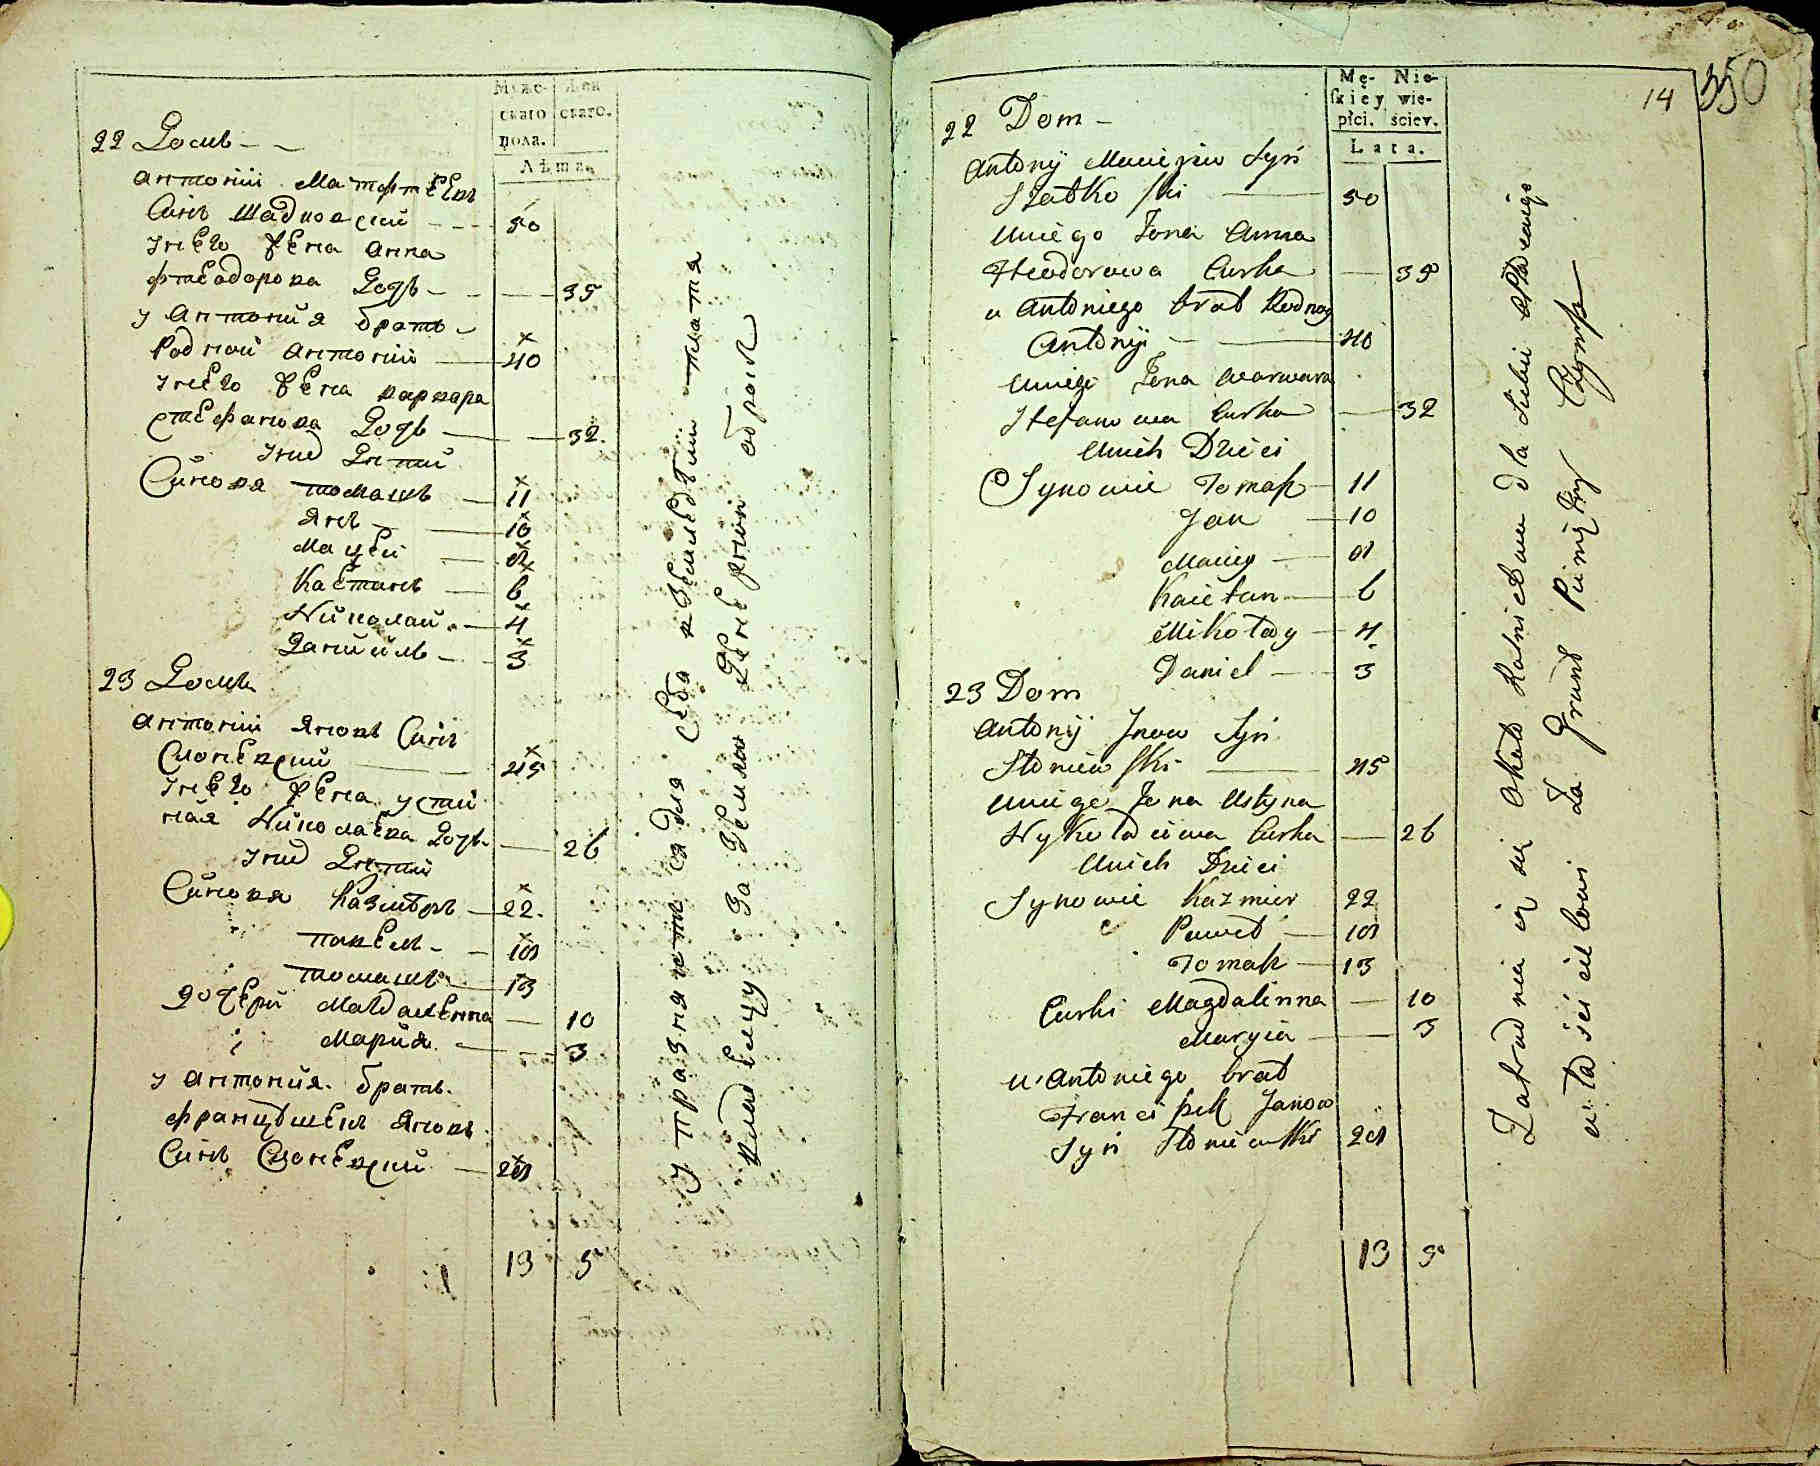 Мужескаго пола.
Женскаго.
Лѣта.
22 Домъ
Антоний Матфтеевъ
Синъ Шадковский 50
Унего Жена Анна
Фтеодорова Дочь 35
У Антония братъ
Родной Антоний 40
Унего Жена варвара
Стефанова Дочь 32.
Уних Дети
Синовя томашъ 11
Янъ 10
Мацей 8
Каетанъ 6
Николай 4
Данииль 3
23 Домъ
Антоний Яновъ Синъ
Слоневский 45
Унего Жена усти
ная Николаева Дочь 26
Уних Дети
Синовя Казимѣръ 22.
павелъ 18
томашъ 13
Дочери Магдаленна 10
Мария 3
У Антония братъ
францѣшекъ Яновъ
Синъ Слоневский 28
13 5
упражняются для себя в земледѣлии платя
владелцу за землю Дене жной оброк
14 350
Męskiey płci.
Niewieściey.
Lata.
22 Dom
Antonÿ Macieiow Syń
Szatkoſki 50
Uniego Żona Anna
Fteodorowa Curka 35
u Antoniego brat Rodnoy
Antonÿ 40
Uniego Żona Warwara
Stefanowa Curka 32
Unich Dzieci
Synowie Tomaſz 11
Jan 10
Maciey 8
Kaietan 6
Mikołay 4
Daniel 3
23 Dom
Antonÿ Janow Syń
Słoniewſki 45
Uniego Żona Ustyna
Nykołaiewa Curka 26
Unich Dzieci
Synowie Kazmier 22
Paweł 18
Tomaſz 13
Curki Magdalinna 10
Maryia 3
u Antoniego brat
Franciſzek Janow
Syń Słoniewſki 28
13 5
Zatrudnia ią się około Rolnictwa dla siebie opłacaiąc
właścicielowi za Grunt Pieniężny Czynſz